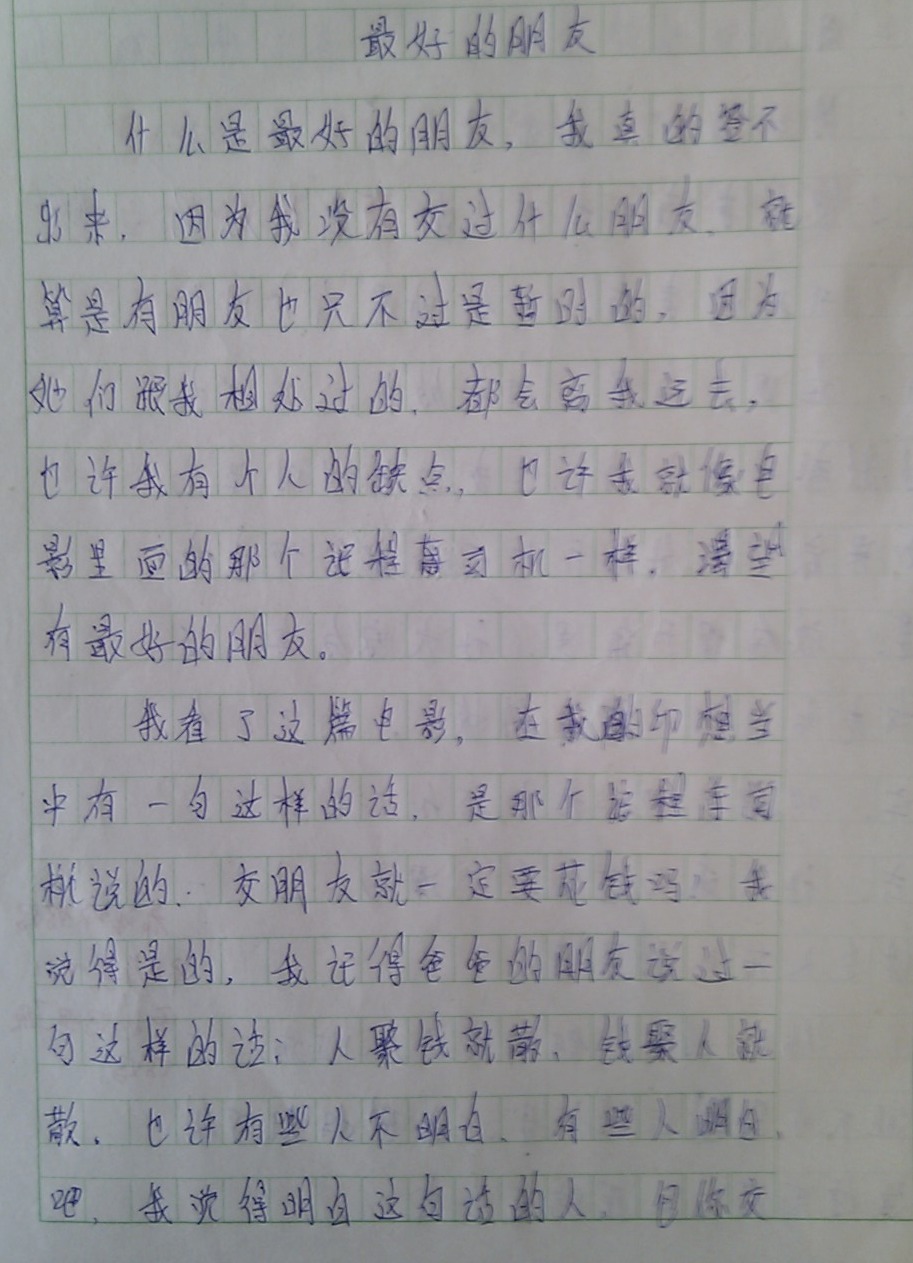 最好的朋友
什么是最好的朋友，我真的答不
出来，因为我没有交过什么朋友，就
算是有朋友也只不过是暂时的，因为
她们跟我相处过的，都会离我远去，
也许我有个人的缺点，也许我就像电
影里面的那个计程车司机一样，渴望
有最好的朋友。
我看了这篇电影，在我的印想当
中有一句这样的话，是那个计程车司
机说的，交朋友就一定要花钱吗 我
觉得是的，我记得爸爸的朋友说过一
句这样的话：人聚钱就散，钱聚人就
散，也许有些人不明白，有些人明白
吧，我觉得明白这句话的人，你交